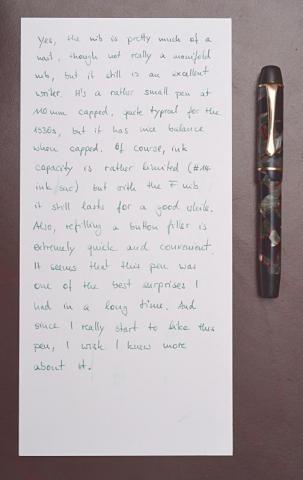 Yes, the nib is pretty much of a
nail, though not really a manifold
nib, but it still is an excellent
writer. It's a rather small pen at
110 mm capped, quite typical for the
1930s, but it has nice balance
when capped. Of course, ink
capacity is rather limited
ink sac) but with the F nib
it still lasts for a good while.
Also, refilling a button filler is
extremely quick and convenient.
It seems that this pen was
one of the best surprises I
had in a long time. And
since I really start to like this
pen, I wish I knew more
about it.